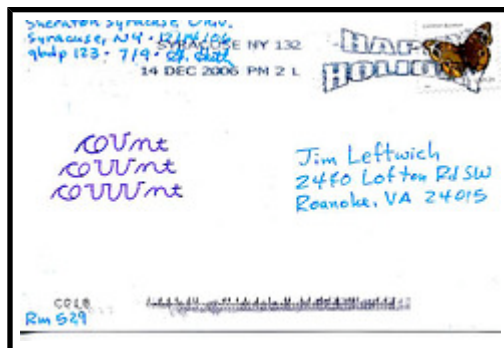 Sheraton Syracuse Univ.
Syracuse, NY · 12/14/06
qbdp 123 · 7/9 ·
SYRACUSE NY 132
14 DEC 2006 PM 2 L
HAPPY
HOLIDAY
coUnt
coUUnt
coUUUnt
Jim Leftwich
2480 Lofton Rd SW
Roanoke, VA 24015
Rm 529